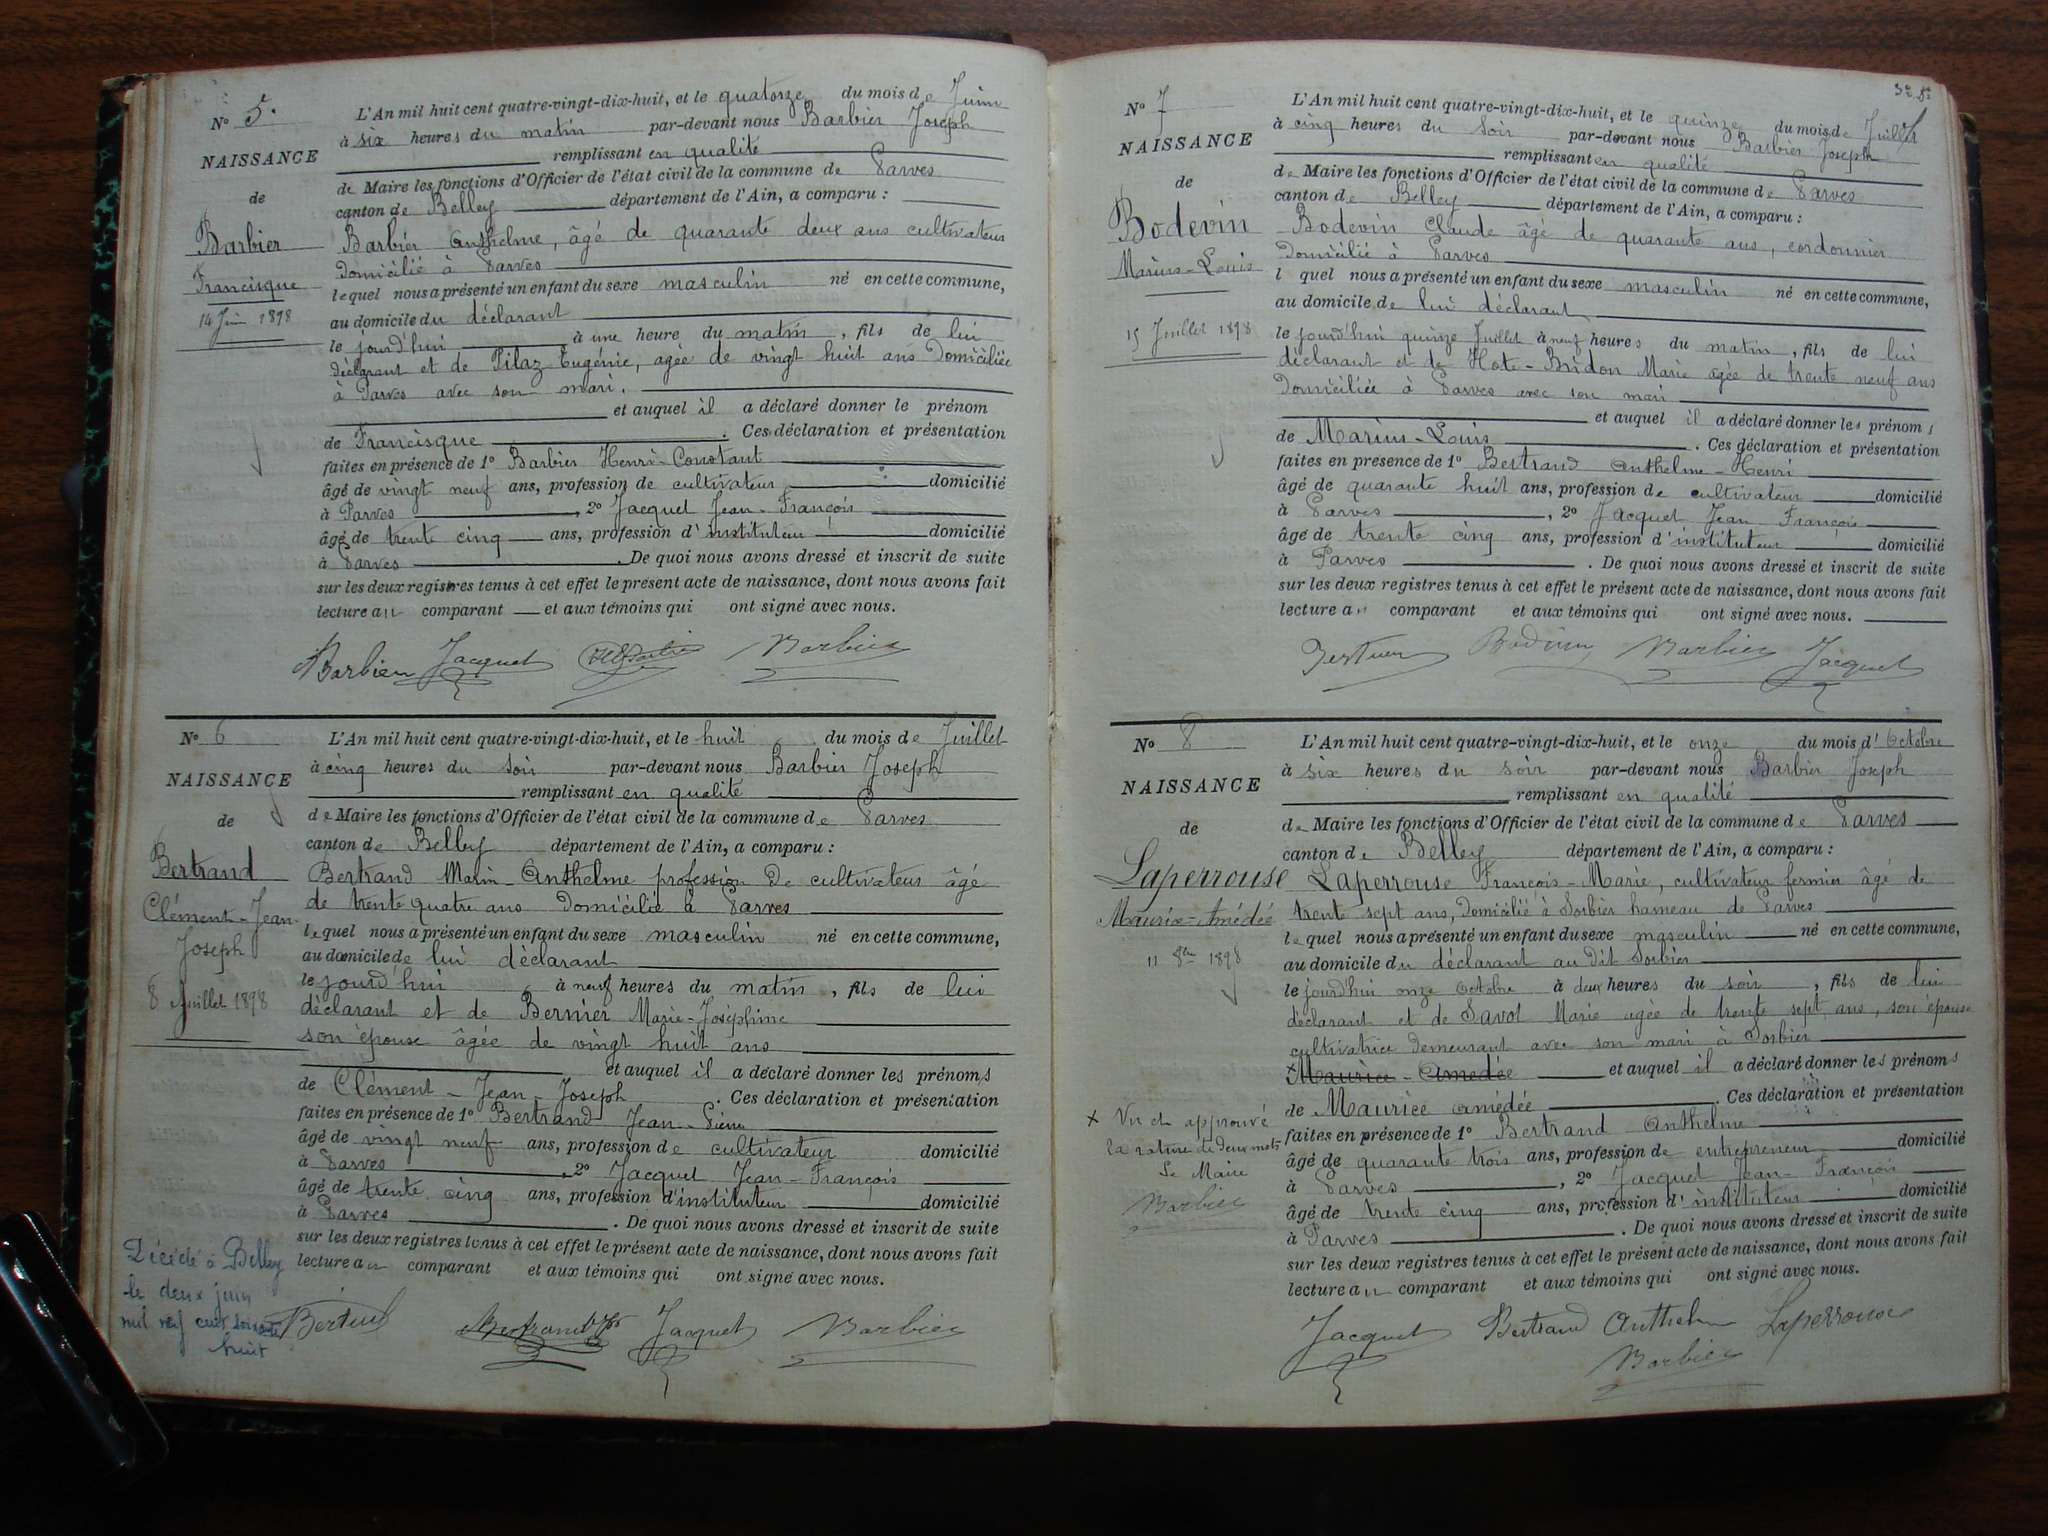 N° 5.
NAISSANCE
de
Barbier
Francisque
14 Juin 1898
L'An mil huit cent quatre-vingt-dix-huit, et le quatorze du mois de Juin
à six heures du matin par-devant nous Barbier Joseph
remplissant en qualité
de Maire les fonctions d'Officier de l'état civil de la commune de Parves
canton de Belley département de l'Ain, a comparu :
Barbier Anthelme, âgé de quarante deux ans cultivateur
domicilié à Parves
lequel nous a présenté un enfant du sexe masculin né en cette commune,
au domicile du déclarant
le jourd'hui à une heure du matin, fils de lui
déclarant et de Pilaz Eugénie, agée de vingt huit ans Domiciliée
à Parves avec son mari.
et auquel il a déclaré donner le prénom
de Francisque. Ces déclaration et présentation
faites en présence de 1° Barbier Henri-Constant
âgé de vingt neuf ans, profession de cultivateur domicilié
à Parves, 2° Jacquet Jean-François
âgé de trente cinq ans, profession d'instituteur domicilié
à Parves. De quoi nous avons dressé et inscrit de suite
sur les deux registres tenus à cet effet le présent acte de naissance, dont nous avons fait
lecture au comparant et aux témoins qui ont signé avec nous.
Barbier Jacquet Barbier
N° 6
NAISSANCE
de
Bertrand
Clément-Jean-
Joseph
8 Juillet 1898
L'An mil huit cent quatre-vingt-dix-huit, et le huit du mois de Juillet
à cinq heures du soir par-devant nous Barbier Joseph
remplissant en qualité
de Maire les fonctions d'Officier de l'état civil de la commune de Parves
canton de Belley département de l'Ain, a comparu :
Bertrand Marin-Anthelme profession de cultivateur âgé
de trente quatre ans Domicilié à Parves
lequel nous a présenté un enfant du sexe masculin né en cette commune,
au domicile de lui déclarant
le jourd'hui à neuf heures du matin, fils de lui
déclarant et de Bernier Marie-Joséphine
son épouse âgée de vingt huit ans
et auquel il a déclaré donner les prénoms
de Clément-Jean-Joseph. Ces déclaration et présentation
faites en présence de 1° Bertrand Jean-Pierre
âgé de vingt neuf ans, profession de cultivateur domicilié
à Parves, 2° Jacquet Jean-François
âgé de trente cinq ans, profession d'instituteur domicilié
à Parves. De quoi nous avons dressé et inscrit de suite
sur les deux registres tenus à cet effet le présent acte de naissance, dont nous avons fait
lecture au comparant et aux témoins qui ont signé avec nous.
Décédé à Belley
le deux juin
mil neuf cent soixante
huit
Bertrand Jacquet Barbier
3e fet
N° 7
NAISSANCE
de
Bodevin
Marius-Louis
15 Juillet 1898
L'An mil huit cent quatre-vingt-dix-huit, et le quinze du mois de Juillet
à cinq heures du soir par-devant nous Barbier Joseph
remplissant en qualité
de Maire les fonctions d'Officier de l'état civil de la commune de Parves
canton de Belley département de l'Ain, a comparu :
Bodevin Claude âgé de quarante ans, cordonnier
Domicilié à Parves
l quel nous a présenté un enfant du sexe masculin né en cette commune,
au domicile de lui déclarant
le jourd'hui quinze Juillet à neuf heures du matin, fils de lui
déclarant et de Hote-Bridon Marie agée de trente neuf ans
Domiciliée à Parves avec son mari
et auquel il a déclaré donner les prénoms
de Marius-Louis. Ces déclaration et présentation
faites en présence de 1° Bertrand Anthelme-Henri
âgé de quarante huit ans, profession de cultivateur domicilié
à Parves, 2° Jacquet Jean François
âgé de trente cinq ans, profession d'instituteur domicilié
à Parves. De quoi nous avons dressé et inscrit de suite
sur les deux registres tenus à cet effet le présent acte de naissance, dont nous avons fait
lecture au comparant et aux témoins qui ont signé avec nous.
Bodevin Barbier Jacquet
N° 8
NAISSANCE
de
Laperrouse
Maurice-Amédée
11 8bre 1898
L'An mil huit cent quatre-vingt-dix-huit, et le onze du mois d'Octobre
à six heures du soir par-devant nous Barbier Joseph
remplissant en qualité
de Maire les fonctions d'Officier de l'état civil de la commune de Parves
canton de Belley département de l'Ain, a comparu :
Laperrouse François-Marie, cultivateur fermier âgé de
trente sept ans, Domicilié à Sorbier hameau de Parves
lequel nous a présenté un enfant du sexe masculin né en cette commune,
au domicile du déclarant au dit Sorbier
le jourd'hui onze Octobre à deux heures du soir, fils de lui
déclarant et de Savot Marie agée de trente sept ans, son épouse
cultivatrice demeurant avec son mari à Sorbier
x Maurice-Amédée et auquel il a déclaré donner les prénoms
de Maurice Amédée. Ces déclaration et présentation
faites en présence de 1° Bertrand Anthelme
âgé de quarante trois ans, profession de entrepreneur domicilié
à Parves, 2° Jacquet Jean-François
âgé de trente cinq ans, profession d'instituteur domicilié
à Parves. De quoi nous avons dressé et inscrit de suite
sur les deux registres tenus à cet effet le présent acte de naissance, dont nous avons fait
lecture au comparant et aux témoins qui ont signé avec nous.
x Vu et approuvé
la rature de deux mots
Le Maire
Barbier
Jacquet Bertrand Anthelme Laperrouse
Barbier